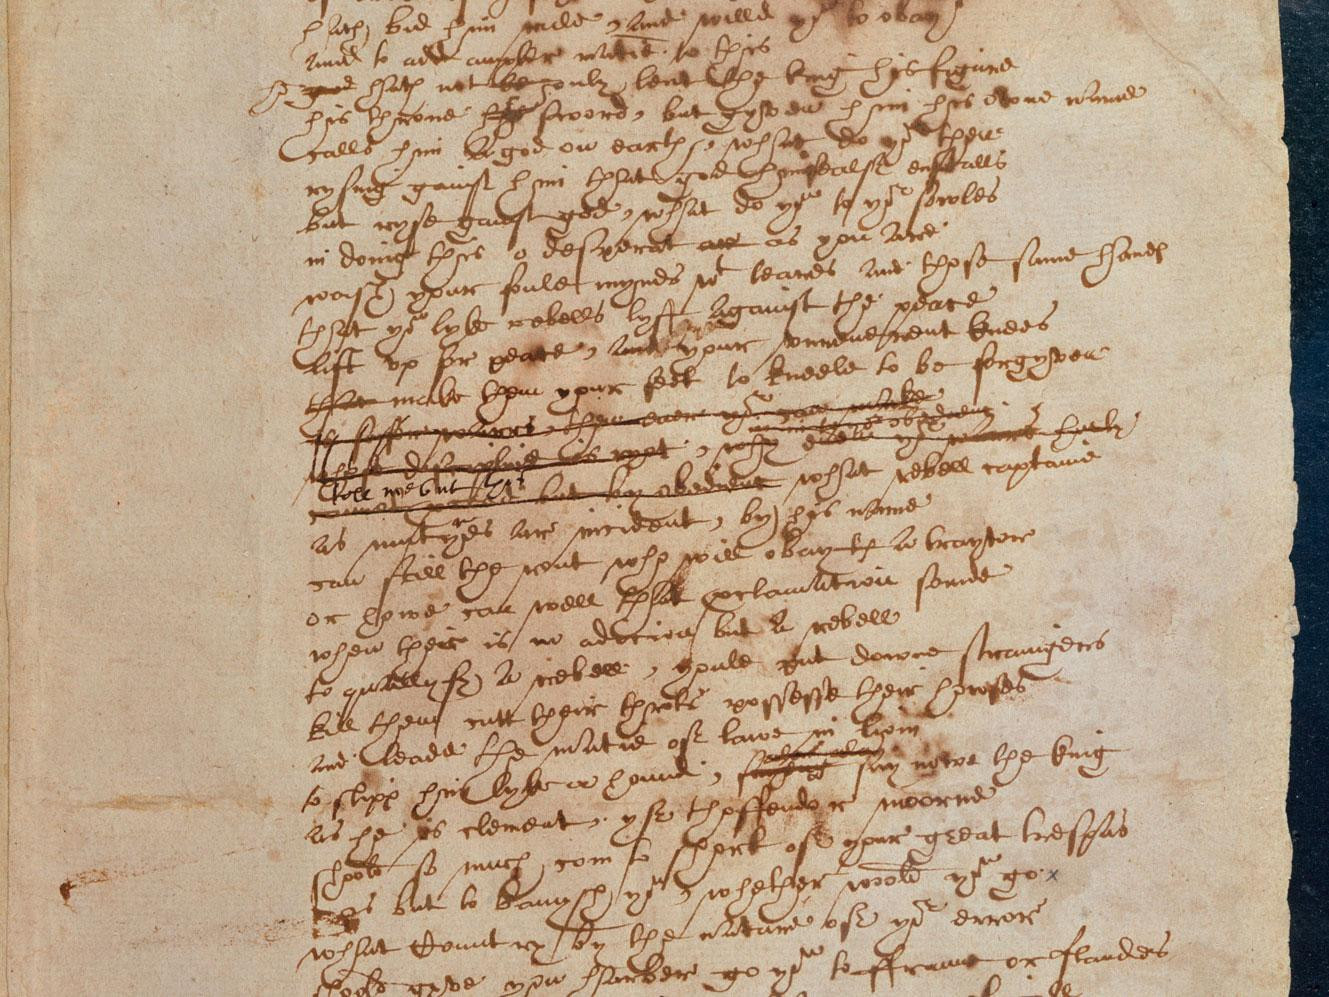 hath bid him rule, and willd yō to obay
and to add ampler matie. to this
he god hath not le only lent the king his figure
his throne his sword, but gyven him his owne name
calls him a god on earth, what do yō then
rysing gainst him that god himsealf enstalls
but ryse gainst god, what do yō to yōr sowles
in doing this o desperat ar as you are.
wash your foule mynds wt teares and those same handes
that yō lyke rebells lyft against the peace
lift up for peace, and your unreuerent knees
that make them your feet to kneele to be forgyven
is safer warrs, then euer yō can make
in in to yor obedienc.
whose discipline is ryot; why euen yōr warrs hurly
tell me but this
cannot proceed but by obedienc what rebell captaine
as mutynes ar incident, by his name
can still the rout who will obay th a traytor
or howe can well that proclamation sounde
when ther is no adicion but a rebell
to quallyfy a rebell, youle put downe straingers
kill them cutt their throts possesse their howses
and leade the matie of lawe in liom
to slipp him lyke a hound; alas alas say nowe the king
as he is clement,. yf thoffendor moorne
shoold so much com to short of your great trespas
as but to banysh yō, whether woold yō go.
what Country by the nature of yōr error
shoold gyve you harber go yō to ffraunc or flanders